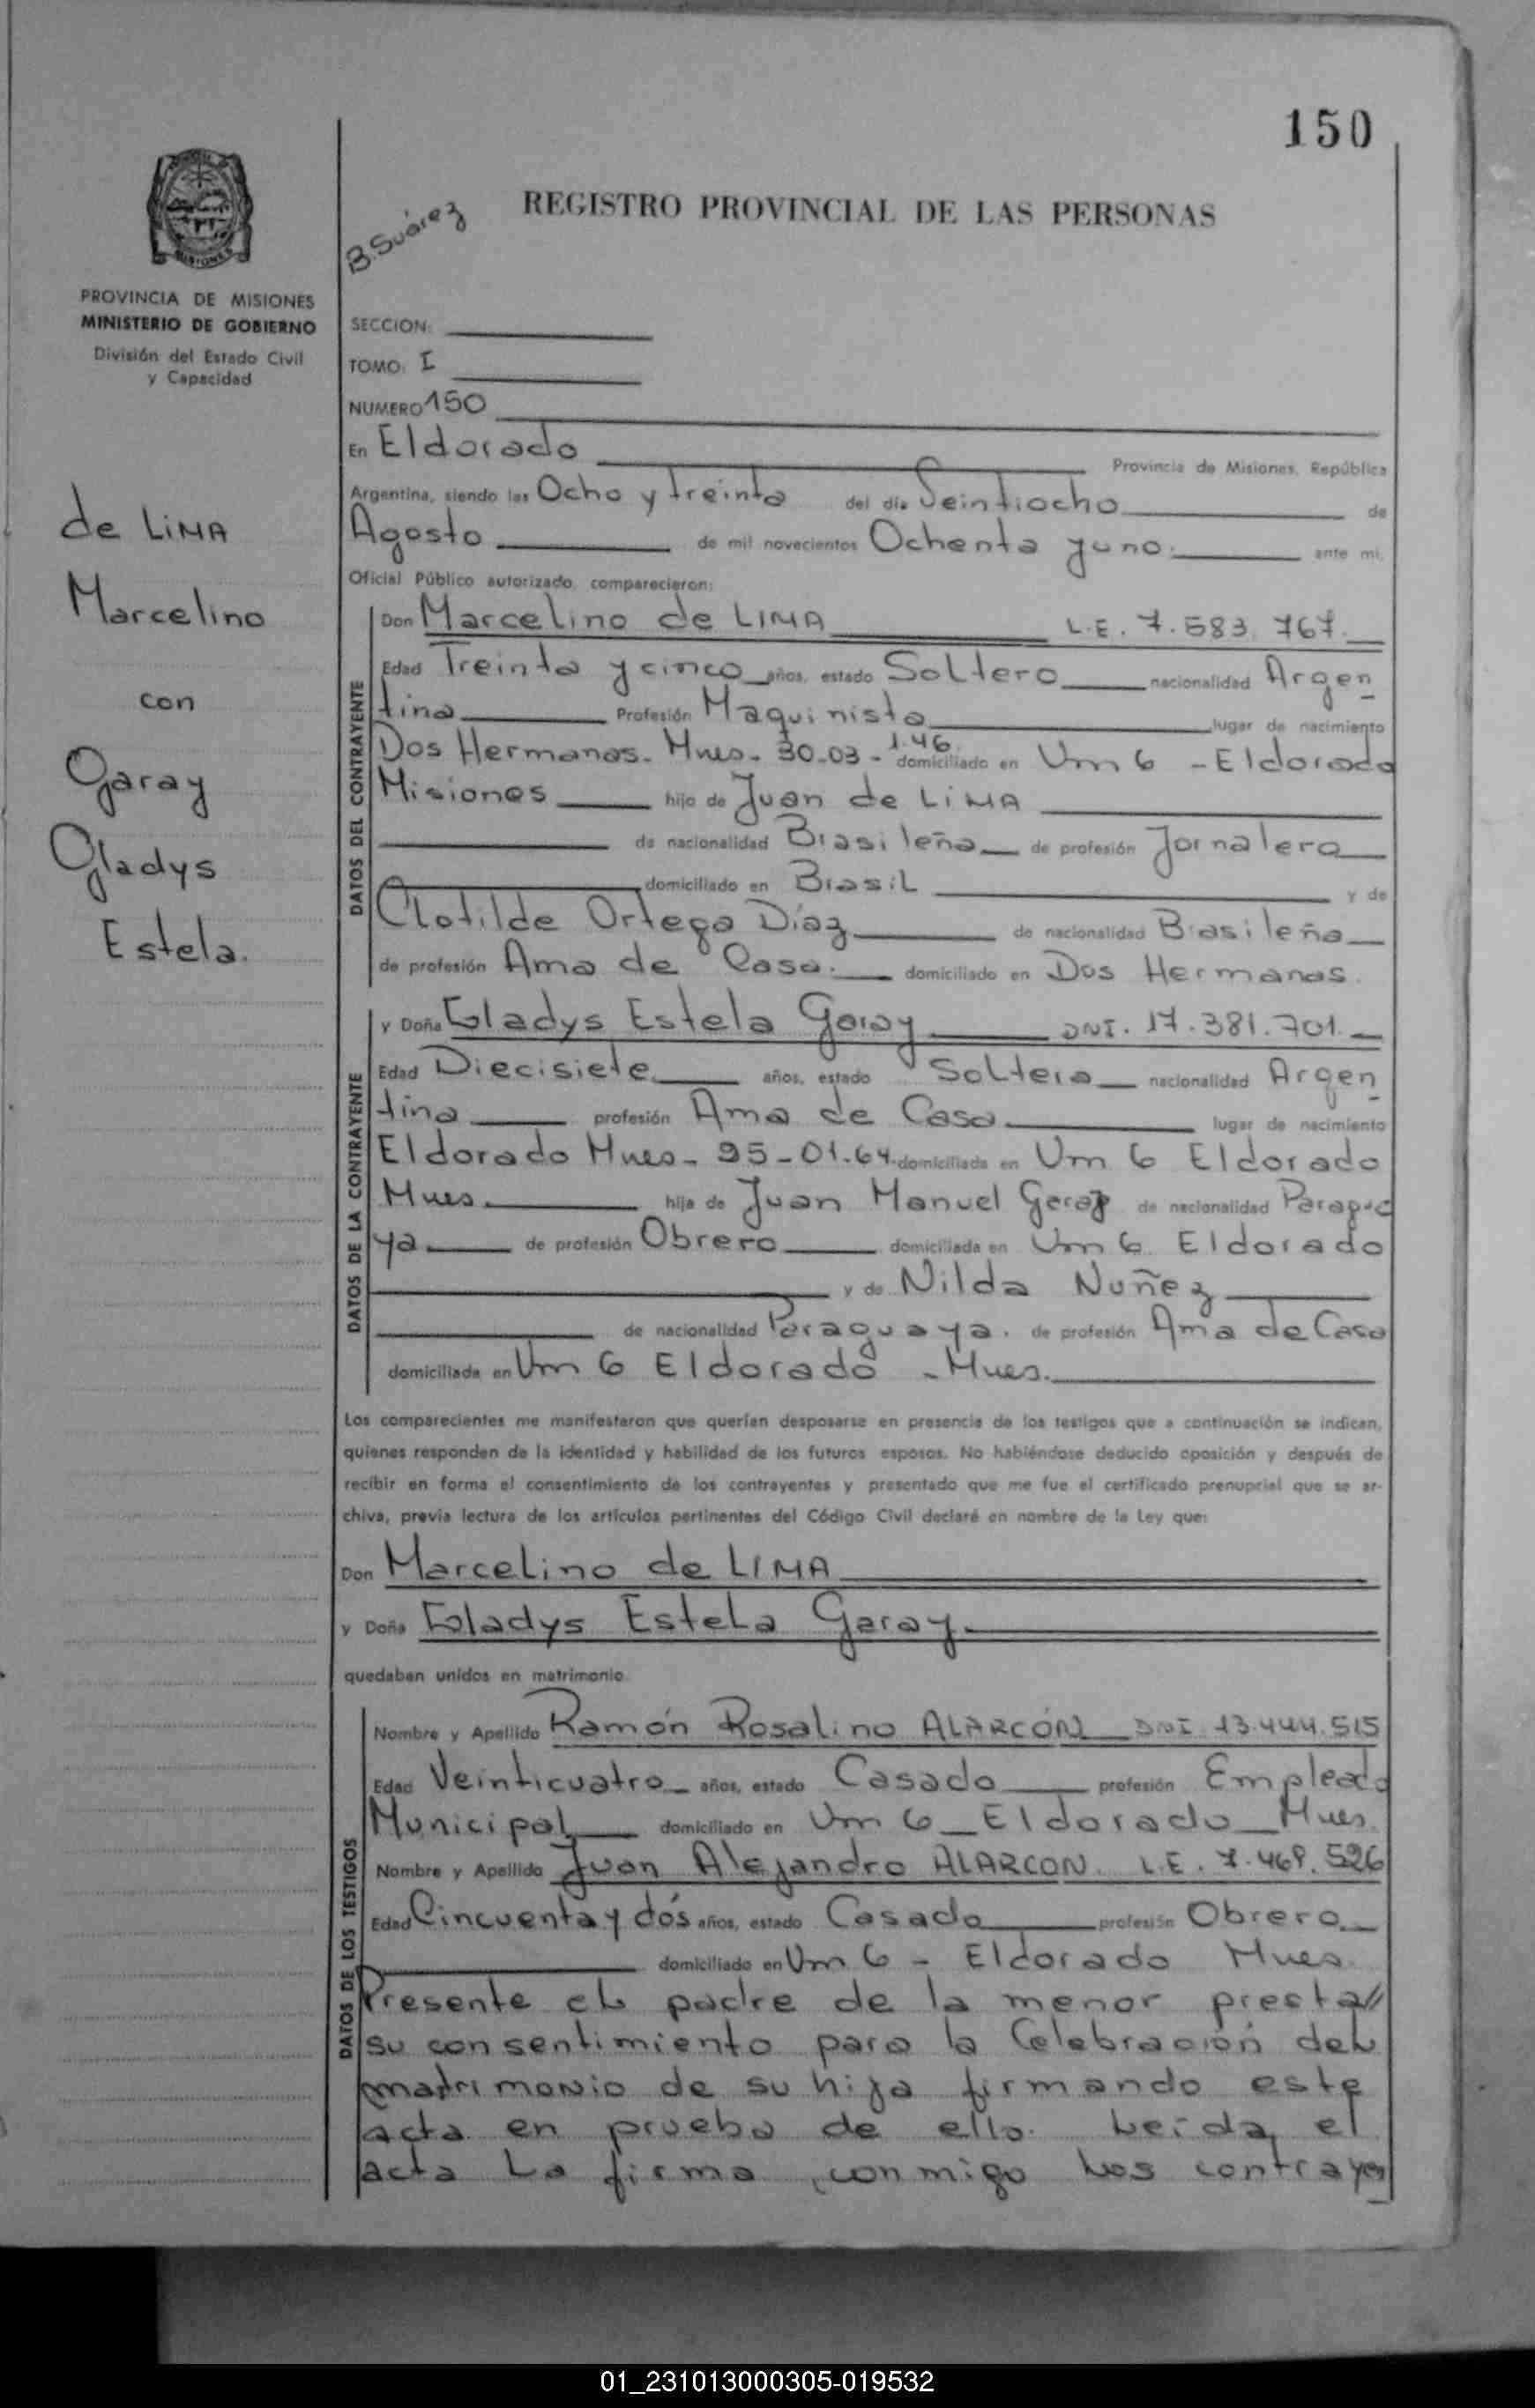 150
REGISTRO PROVINCIAL DE LAS PERSONAS
B. Suárez
PROVINCIA DE MISIONES
MINISTERIO DE GOBIERNO
División del Estado Civil
y Capacidad
SECCION:
TOMO: I
NUMERO 150
de LIMA
Marcelino
con
Garay
Gladys
Estela.
En Eldorado Provincia de Misiones, República
Argentina, siendo las Ocho y treinta del día Veintiocho de
Agosto de mil novecientos Ochenta y uno. ante mi,
Oficial Público autorizado, comparecieron:
DATOS DEL CONTRAYENTE
Don Marcelino de LIMA L.E. 7.583.767.
Edad Treinta y cinco años, estado Soltero nacionalidad Argen
tina Profesión Maquinista lugar de nacimiento
Dos Hermanas - Mnes - 30-03-1.46. domiciliado en Km 6 - Eldorado
Misiones hijo de Juan de LIMA
de nacionalidad Brasileña de profesión Jornalero
domiciliado en Brasil y de
Clotilde Ortega Díaz de nacionalidad Brasileña
de profesión Ama de Casa. domiciliado en Dos Hermanas.
DATOS DE LA CONTRAYENTE
y Doña Gladys Estela Garay DNI. 17.381.701.
Edad Diecisiete años, estado Soltera nacionalidad Argen
tina profesión Ama de Casa lugar de nacimiento
Eldorado Mnes - 25-01-64. domiciliada en Km 6 Eldorado
Mnes hija de Juan Manuel Garay de nacionalidad Paragua
ya de profesión Obrero domiciliada en Km 6. Eldorado
y de Nilda Nuñez
de nacionalidad Paraguaya. de profesión Ama de Casa
domiciliada en Km 6 Eldorado - Mnes.
Los comparecientes me manifestaron que querían desposarse en presencia de los testigos que a continuación se indican,
quienes responden de la identidad y habilidad de los futuros esposos. No habiéndose deducido oposición y después de
recibir en forma el consentimiento de los contrayentes y presentado que me fue el certificado prenupcial que se ar-
chiva, previa lectura de los artículos pertinentes del Código Civil declaré en nombre de la Ley que:
Don Marcelino de LIMA
y Doña Gladys Estela Garay
quedaban unidos en matrimonio.
DATOS DE LOS TESTIGOS
Nombre y Apellido Ramón Rosalino ALARCÓN DNI 13.444.515
Edad Veinticuatro años, estado Casado profesión Empleado
Municipal domiciliado en Km 6 Eldorado Mnes.
Nombre y Apellido Juan Alejandro ALARCON. L.E. 7.469.526
Edad Cincuenta y dós años, estado Casado profesión Obrero
domiciliado en Km 6 - Eldorado Mnes.
Presente el padre de la menor presta//
su consentimiento para la Celebración del
matrimonio de su hija firmando este
acta en prueba de ello. Leída el
acta La firma conmigo Los contrayen
01_231013000305-019532